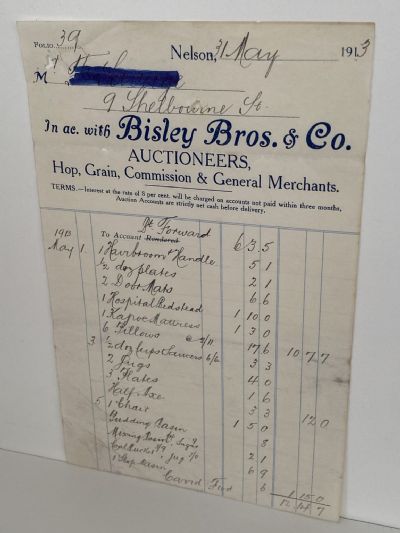 Folio. 39
Nelson, 31 May 1913
M
9 Shelbourne St.
In ac. with Bisley Bros. & Co.
AUCTIONEERS,
Hop, Grain, Commission & General Merchants.
TERMS.—Interest at the rate of 8 per cent. will be charged on accounts not paid within three months,
Auction Accounts are strictly net cash before delivery.
Bt Forward
1913 To Account Rendered 6 3 5
May 1. 1 Hairbroom & Handle 5 1
½ doz plates 2 1
2 Door Mats 6 6
1 Hospital Bedstead 1 10 0
1 Kapoc Mattress 1 3 0
6 Pillows 2/11 17 6 10 7 7
3 ½ doz cups & saucers 6/6 3 3
2 Jugs 4 0
3 Plates 1 6
Half Axe 3 3 12 0
5 1 Chair 1 5 0
Pudding Basin 8
Mixing Jug 2 1
6 9
1 Basin 6
Card Fwd 1 15 0
12 14 7